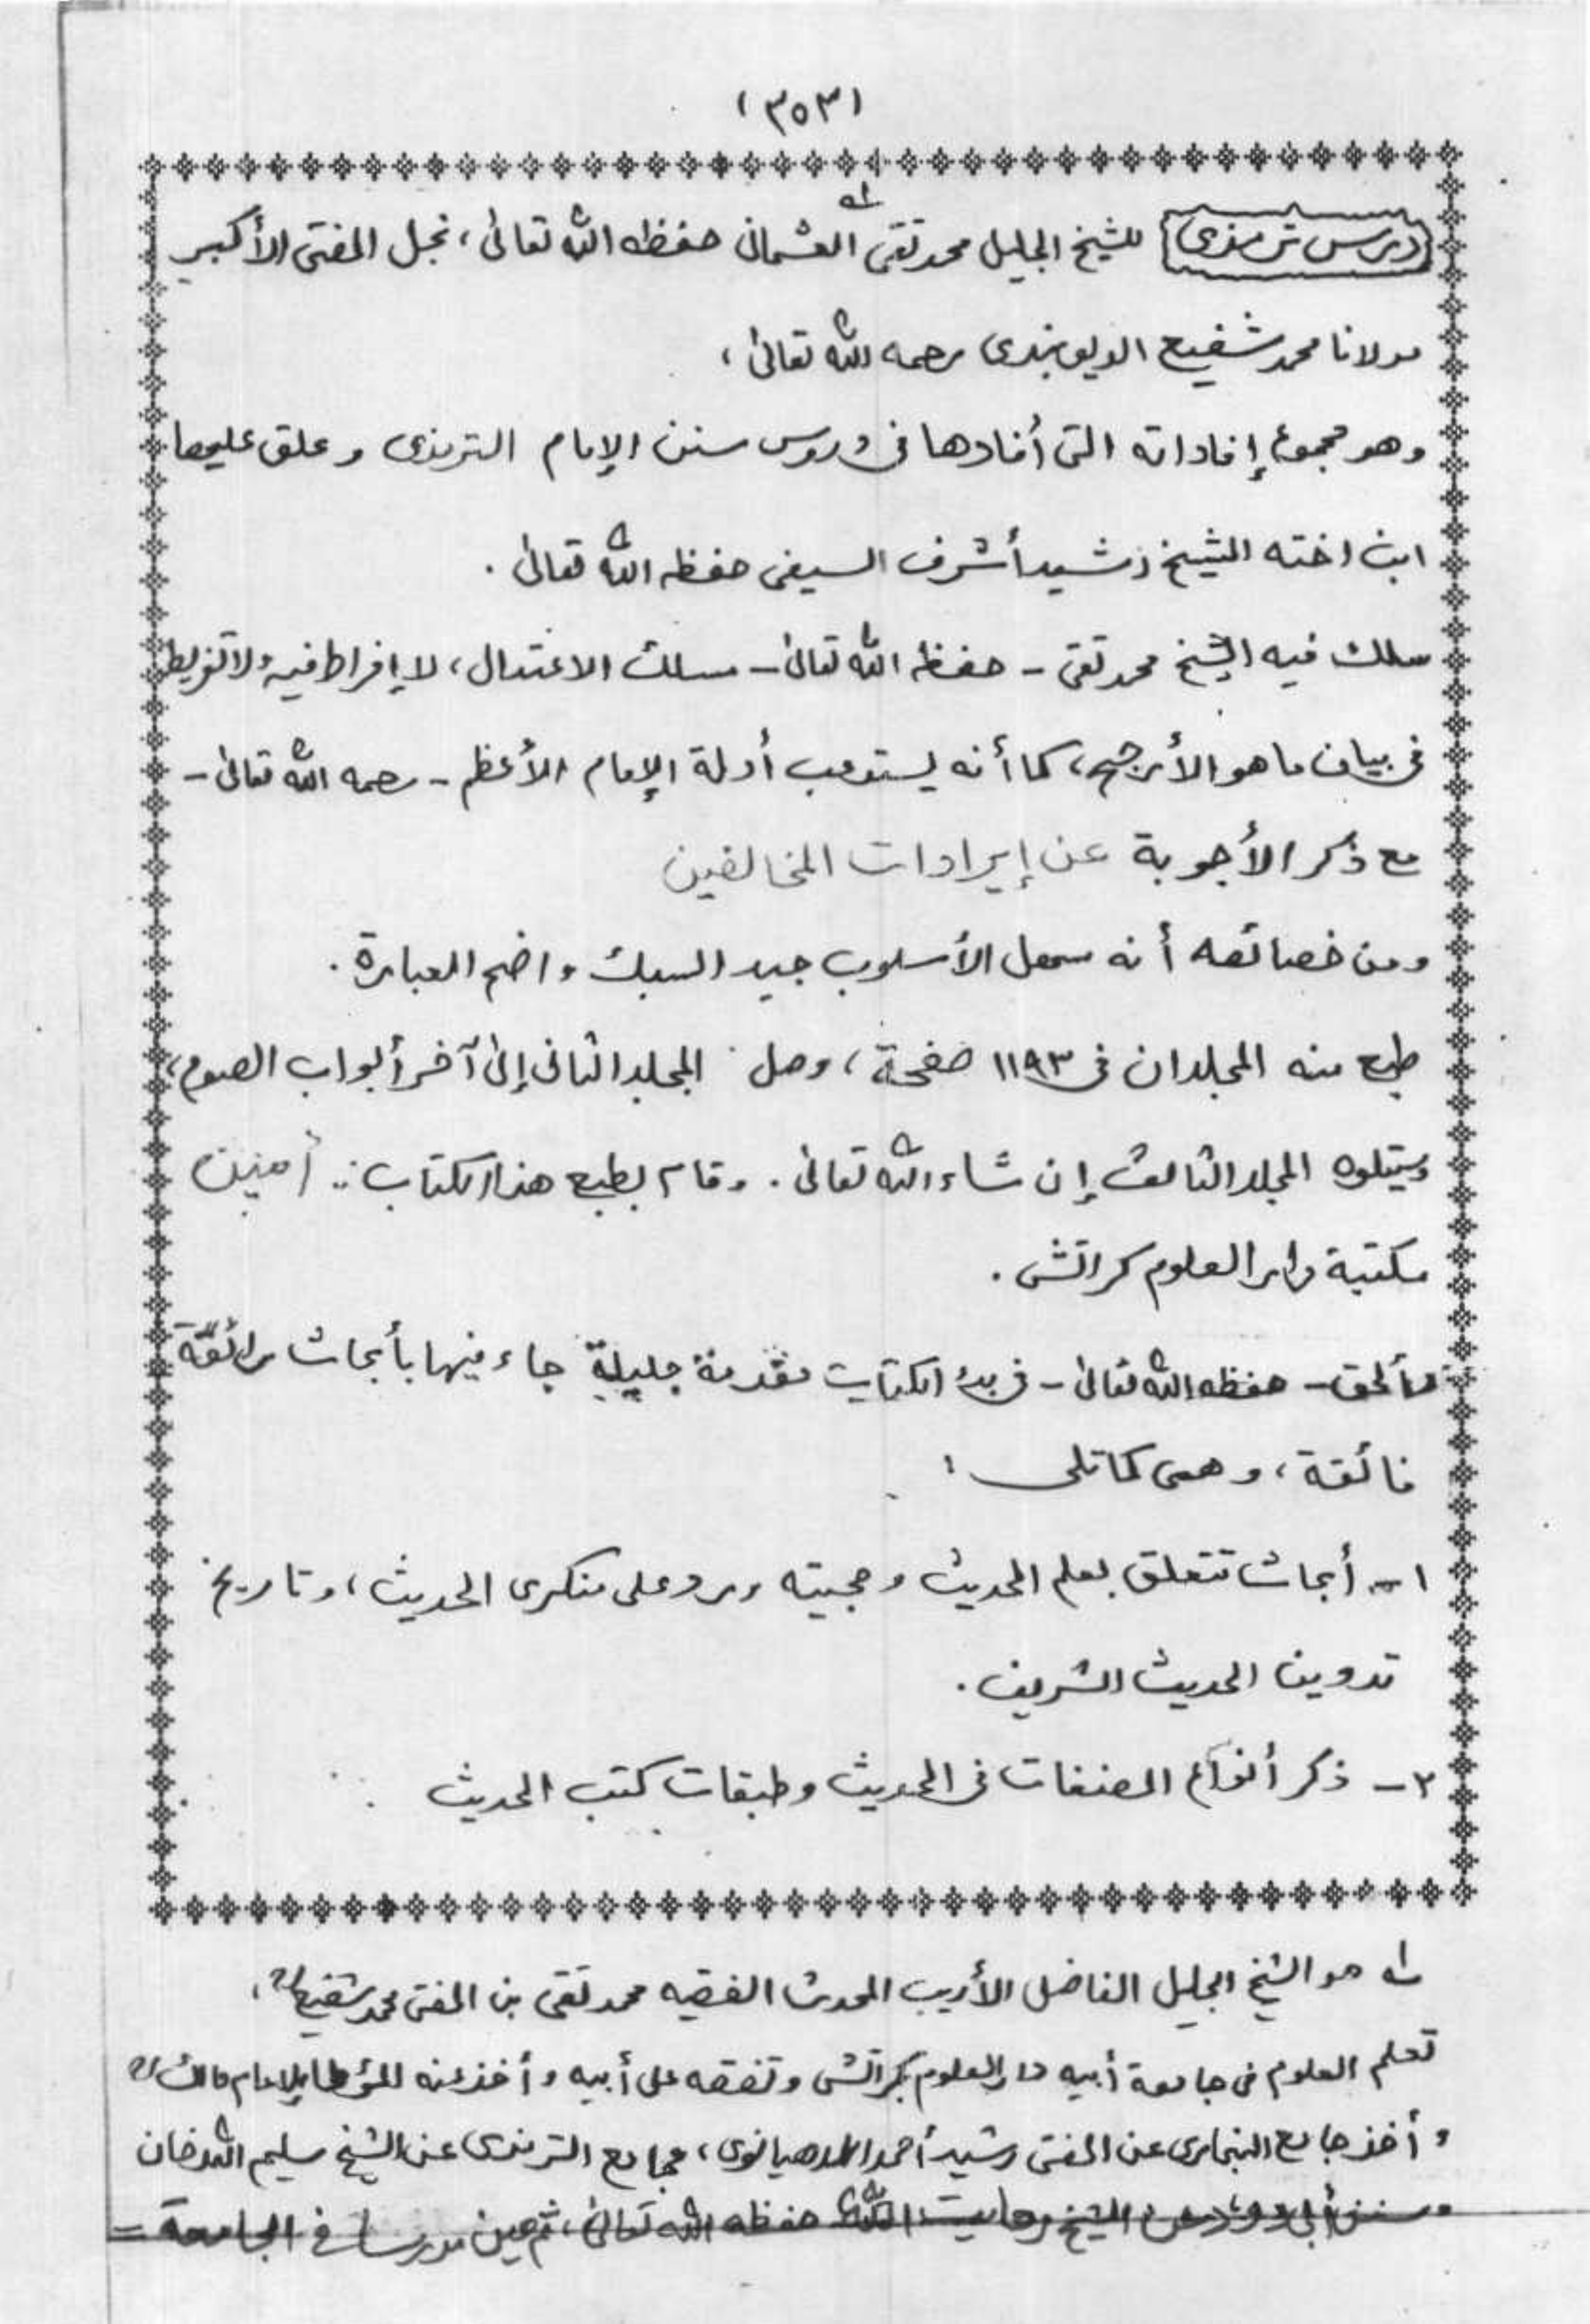 (٣٥٣)
درس ترمذی للشیخ الجلیل محمد تقی العثمانی ؂١ حفظه الله تعالیٰ، نجل المفتی الأکبر
مولانا محمد شفیع الدیوبندی رحمه الله تعالیٰ،
وهو مجموع إفاداته التی أفادها فی دروس سنن الإمام الترمذی وعلق علیها
ابن اخته الشیخ رشید أشرف السیفی حفظه الله تعالیٰ.
سلك فیه الشیخ محمد تقی - حفظه الله تعالیٰ - مسلك الاعتدال، لا إفراط فیه ولا تفریط
فی بیان ما هو الأرجح، كما أنه یستوعب أدلة الإمام الأعظم - رحمه الله تعالیٰ -
مع ذكر الأجوبة عن إیرادات المخالفین
ومن خصائصه أنه سهل الأسلوب جید السبك واضح العبارة.
طبع منه المجلدان فی ١١٩٣ صفحة، وصل المجلد الثانی إلیٰ آخر أبواب الصوم،
وسیتلوه المجلد الثالث إن شاء الله تعالیٰ. وقام بطبع هذا الکتاب: أمین
مکتبة دار العلوم کراتشی.
وألحق - حفظه الله تعالیٰ - فی بدء الکتاب مقدمة جلیلة جاء فیها بأبحاث رائقة
فائقة، وهی کما تلی:
١- أبحاث تتعلق بعلم الحدیث وحجیته ورد علی منکری الحدیث، وتاریخ
تدوین الحدیث الشریف.
٢- ذکر أنواع المصنفات فی الحدیث وطبقات کتب الحدیث
؂١ هو الشیخ الجلیل الفاضل الأدیب المحدث الفقیه محمد تقی بن المفتی محمد شفیع ؒ،
تعلم العلوم فی جامعة أبیه دار العلوم بکراتشی وتفقه علی أبیه وأخذ عنه المؤطا للإمام مالك ؒ
وأخذ جامع البخاری عن المفتی رشید أحمد اللدهیانوی، وجامع الترمذی عن الشیخ سلیم الله خان
وسنن أبی داود عن الشیخ رعایت الله حفظه الله تعالیٰ، ثم عین مدرسا فی الجامعة =